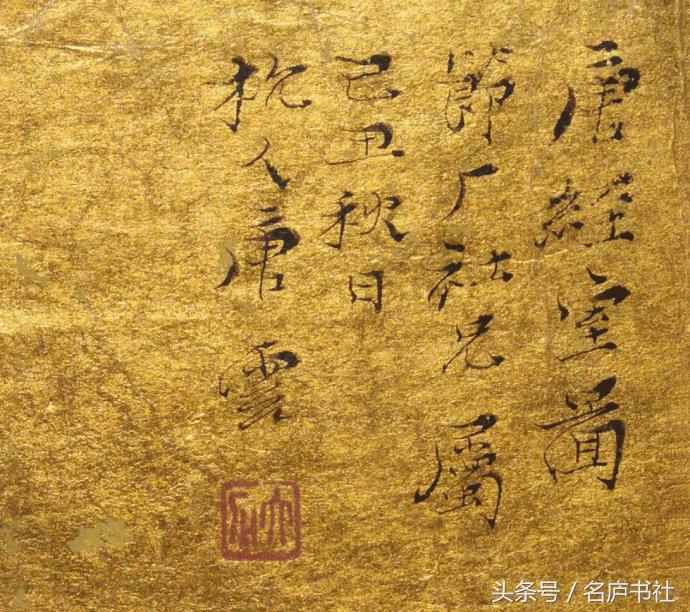 唐經室啚
節厂社兄屬
己丑秋日
杭人唐雲
头条号 / 名庐书社